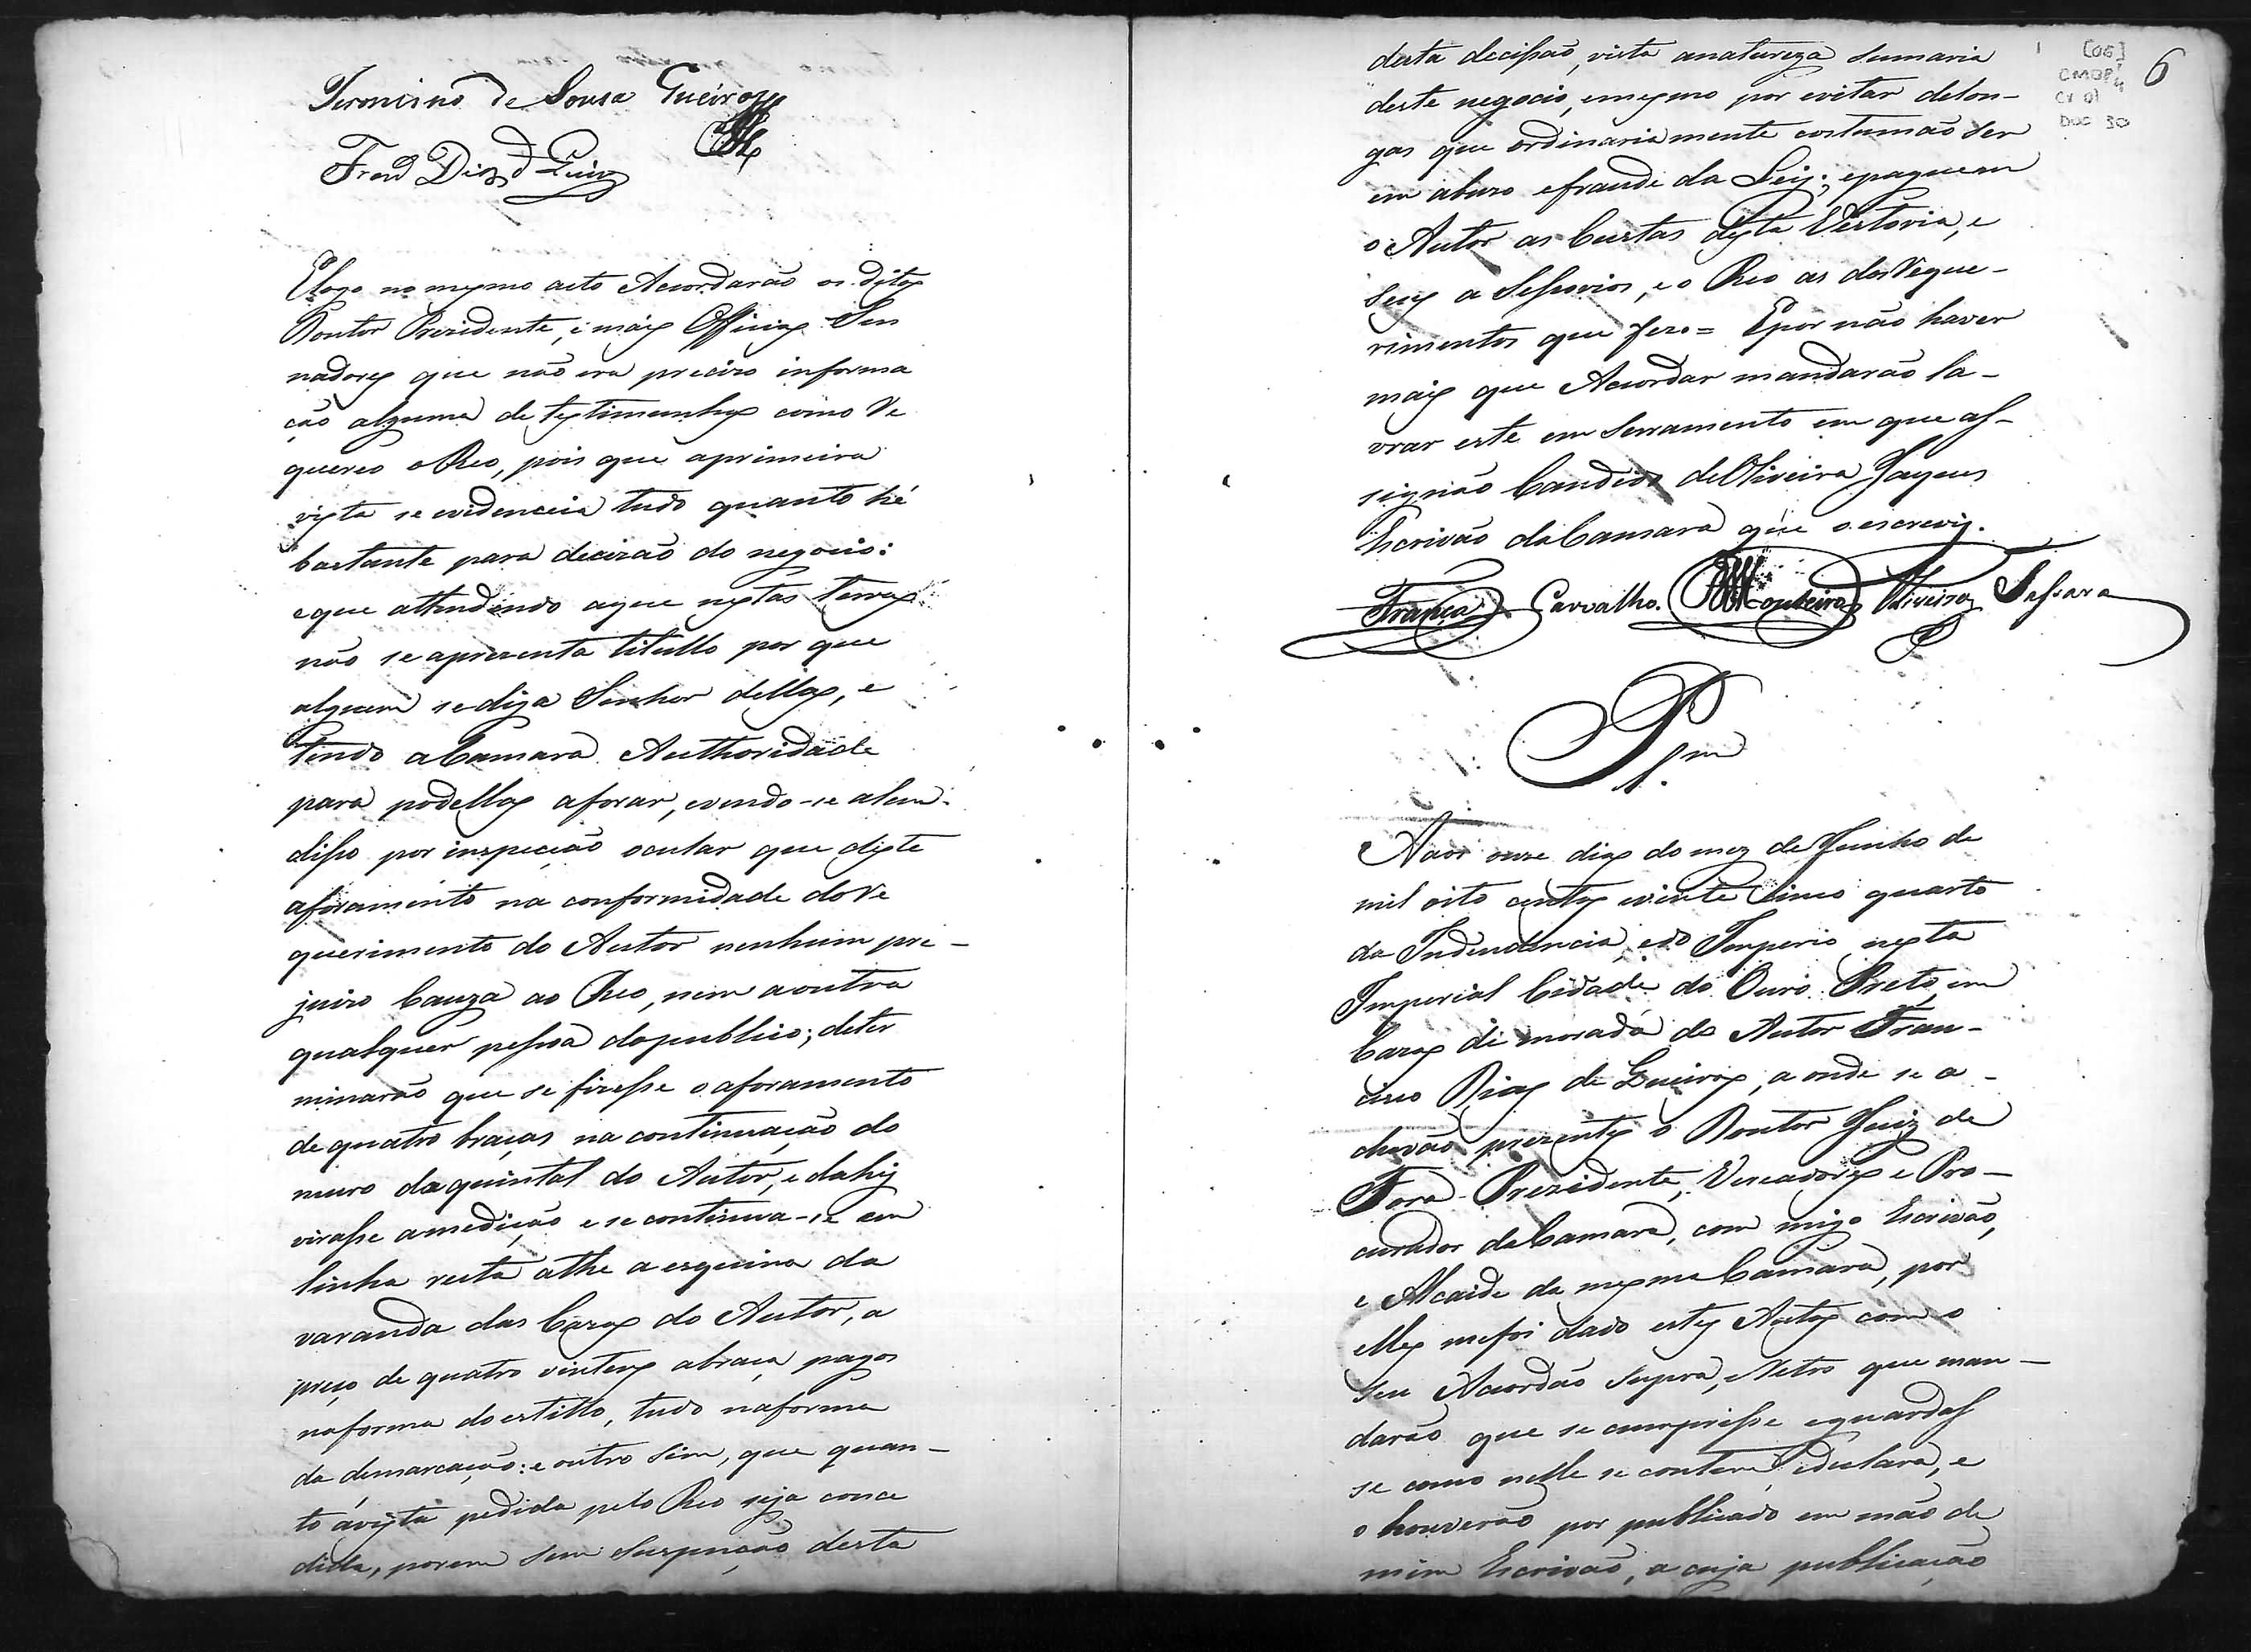 Jeronimo de Sousa Gueiroz
Fran.co Diaz d Queiroz
E logo no mesmo acto Acordarão os ditos
Doutor Prezidente, e máis Officiaes Sen
nadores que não era precizo informa
ção alguma de testimunhas como Re
quereo o Reo, pois que aprimeira
vista se evidenceia tudo quanto hé
bastante para decizão do negocio:
eque attendendo aque nestas terras
não se aprezenta titullo por que
alguem sediga Senhor dellas, e
tendo aCamara Authoridade
para podellas aforar, evendo-se alem
disso por inspecção ocular que deste
aforamento na conformidade doRe
querimento do Autor nenhum pre-
juizo Cauza ao Reo, nem aoutra
qualquer pessoa dopublico; deter
minarão que se fizesse o aforamento
de quatro braças na continuação do
muro do quintal do Autor, e dahy
virasse amedição e se continua-se em
linha recta athe a esquina da
varanda das Cazas do Autor, a
preço de quatro vintens abraça, pagos
naforma do estillo, tudo naforma
da demarcação: e outro sim, que quan-
to ávista pedida pelo Reo seja conce
dida, porem sem suspenção desta
desta decisão, vista anatureza sumaria
deste negocio, emesmo por evitar delon-
gas que ordinariamente costumão ser
em abuzo efraude da Ley; epaguem
o Autor as Custas desta Vestoria, e
seus aSessorios, e o Reo as dosReque-
rimentos que fez= Epor não haver
máis que Acordar mandarão la-
vrar este em serramento em que as-
signão Candido deOliveira Jaques
Escrivão daCamara que o escrevy.
França Carvalho. Monteiro Oliveira Sassara
P.m
Aaos onze dias do mez de Junho de
mil oito centos evinte Cinco quarto
da Indendencia, edo Imperio nesta
Imperial Cidade do Ouro Preto em
Cazas de morada do Autor Fran-
cisco Dias de Queiros, a onde se a-
chavão prezentes o Doutor Juiz de
Fora Prezidente, Vereadores e Pro-
curador daCamara, com migo Escrivão,
e Alcaide da mesma Camara, por
elles mefoi dado estes Autos com o
seu Acordão supra, Retro que man-
darão que se cumprisse eguardas
se como nelle se contem, edeclara, e
o houverão por publicado em mão de
mim Escrivão, a cuja publicação
[06]
CMOP
CX 01
DOC 30
6